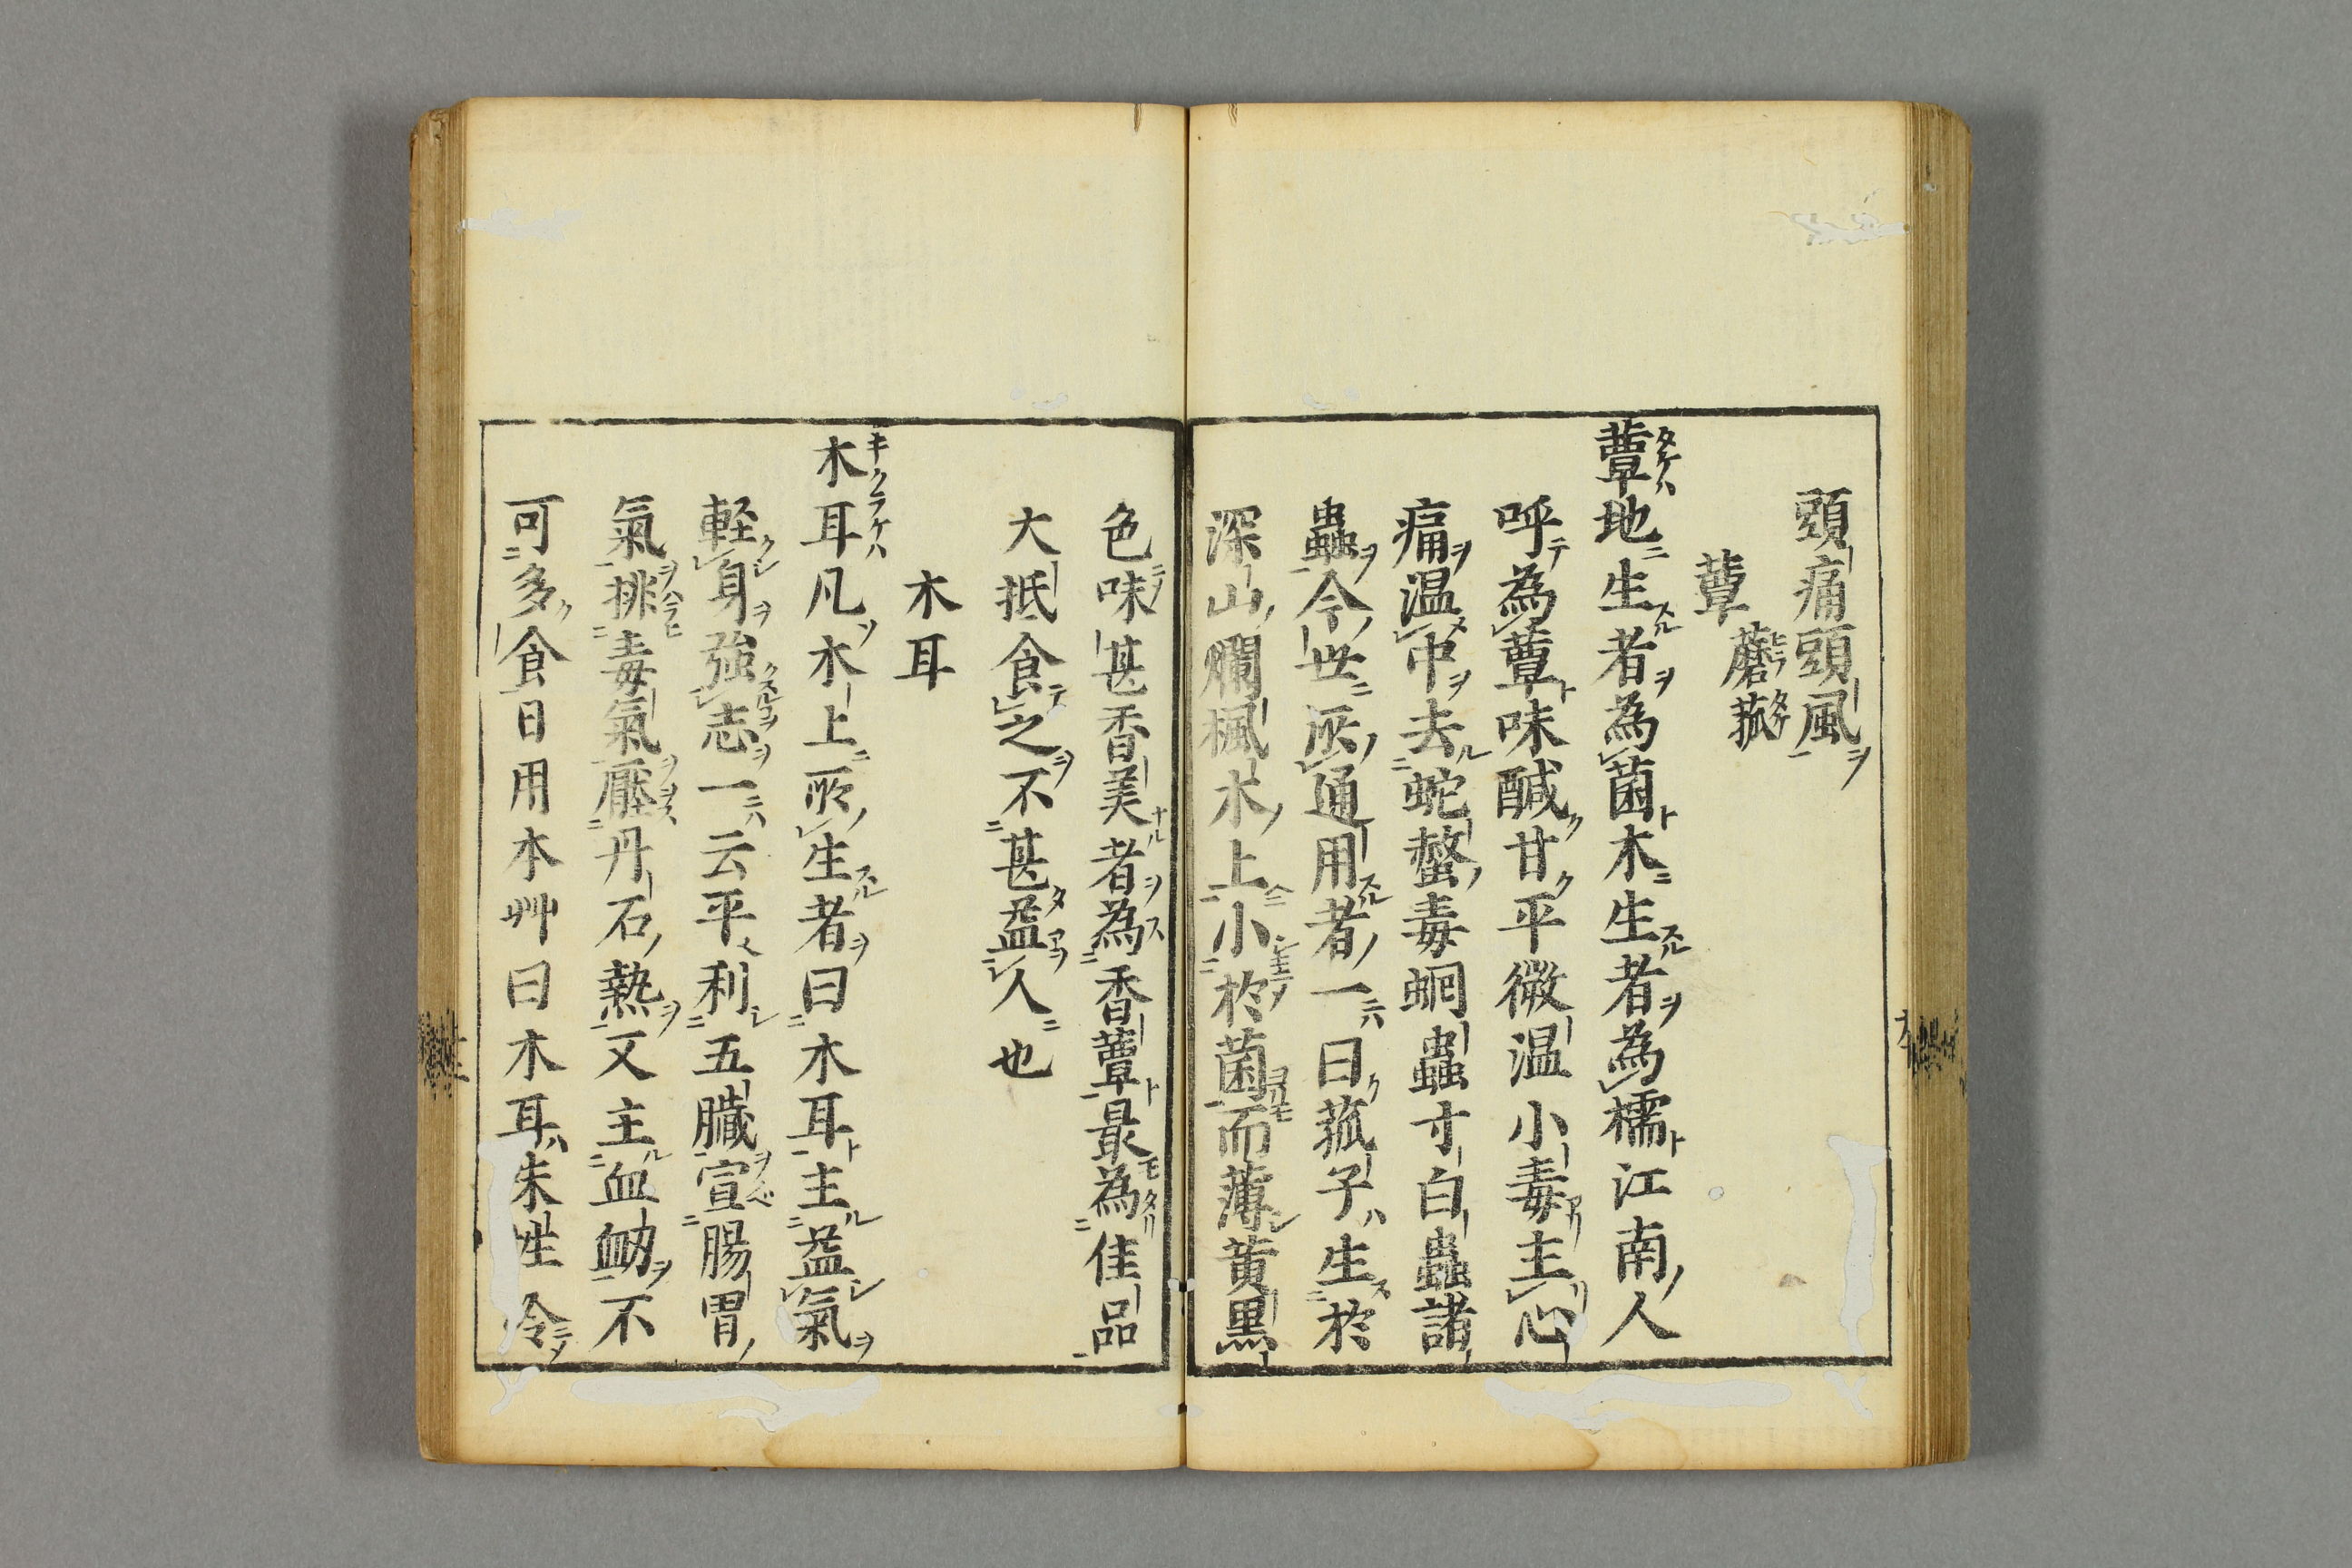 頭痛頭風
蕈 蘑菰
蕈地生者為菌木生者為檽江南人
呼為蕈味醎甘平微温小毒主心
痛温中去蛇螫毒蛔蟲寸白蟲諸
蟲今世所通用者一曰菰子生於
深山爛楓木上小於菌而薄黄黒
色味甚香美者為香蕈最為佳品
大抵食之不甚益人也
木耳
木耳凡木上所生者曰木耳主益氣
軽身強志一云平利五臓宣腸胃
氣排毒氣壓丹石熱又主血衂不
可多食日用本艸曰木耳朱性冷